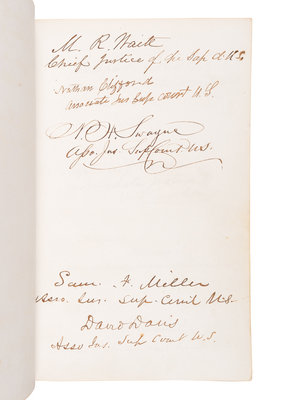 M. R. Waite
Chief Justice of the Sup Ct U.S.
Nathan Clifford
Associate Jus Supe Court U.S.
N. H. Swayne
Asso. Jus. Sup Court U.S.
Sam. F. Miller
Asso. Jus. Sup. Court U.S.
David Davis
Asso Jus. Sup Court U.S.